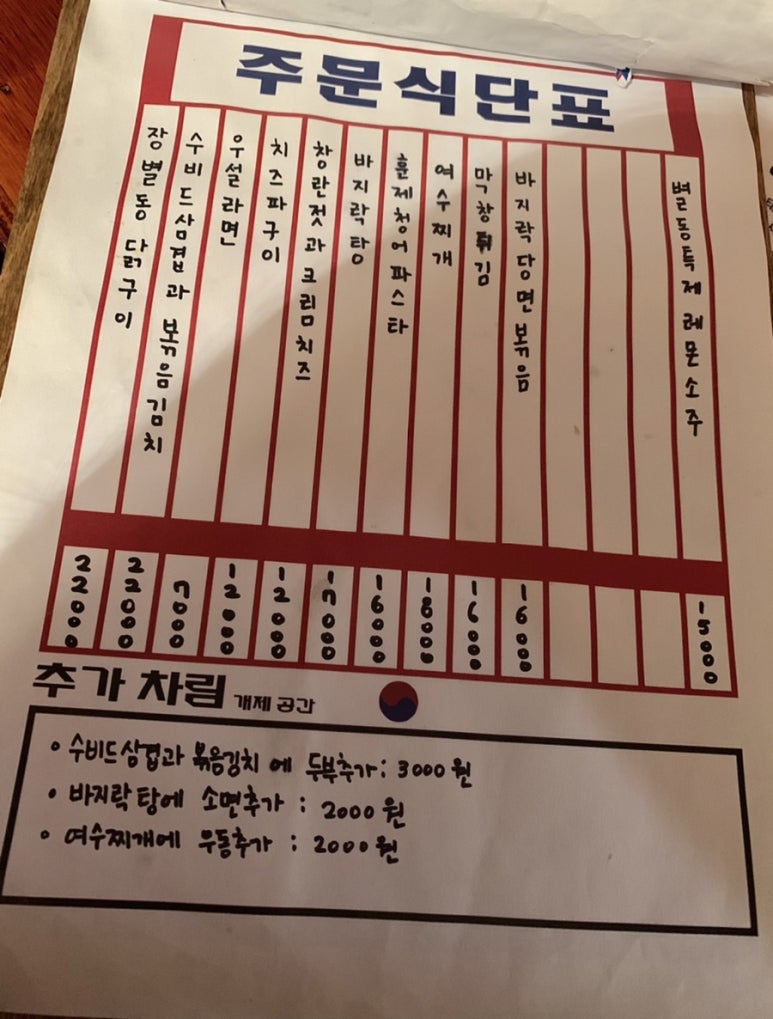 주문식단표
장별동 닭구이
수비드삼겹과 볶음김치
우설라면
치즈파구이
창란젓과크림치즈
바지락탕
훈제청어파스타
여수찌개
막창튀김
바지락당면볶음
별동특제레몬소주
22000
22000
7000
12000
12000
17000
16000
18000
16000
16000
15000
추가 차림 개제 공간
• 수비드삼겹과 볶음김치 에 두부추가: 3000원
• 바지락탕에 소면추가 : 2000원
• 여수찌개에 우동추가 : 2000원